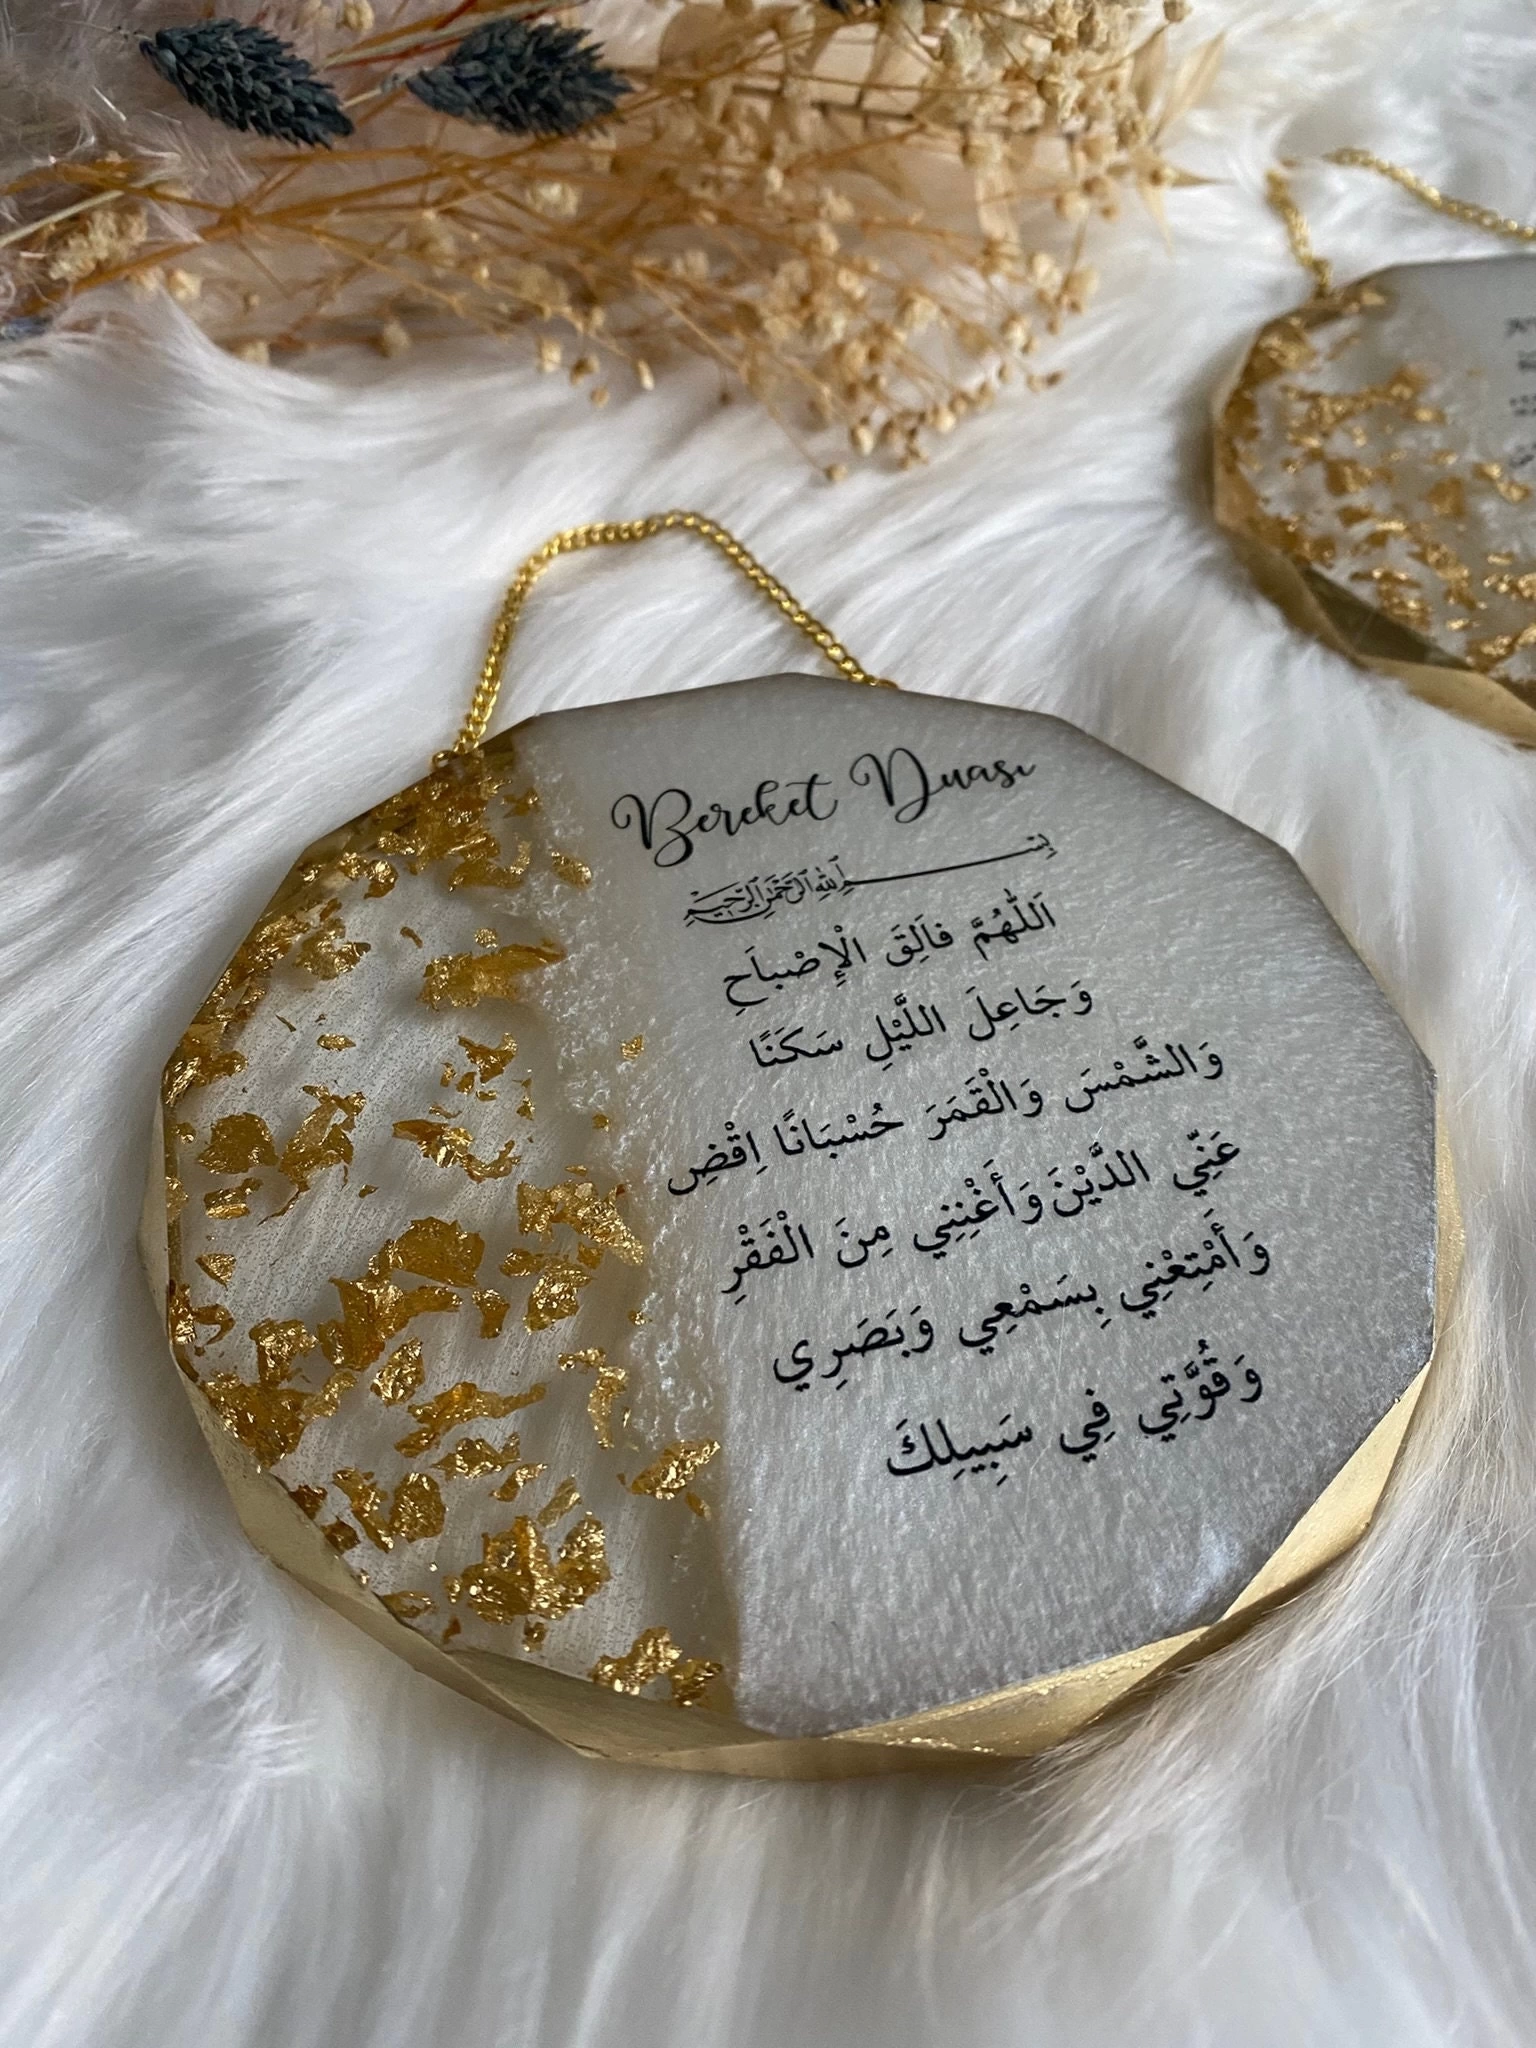 Bereket Duası
بِسْمِ اللهِ الرَّحْمٰنِ الرَّحِيْمِ
اَللّٰهُمَّ فاَلِقَ الْإِصْباَحِ
وَجَاعِلَ اللَّيْلِ سَكَنًا
وَالشَّمْسَ وَالْقَمَرَ حُسْبَانًا اِقْضِ
عَنِّي الدَّيْنَ وَأَغْنِنِي مِنَ الْفَقْرِ
وَأَمْتِعْنِي بِسَمْعِي وَبَصَرِي
وَقُوَّتِي فِي سَبِيلِكَ